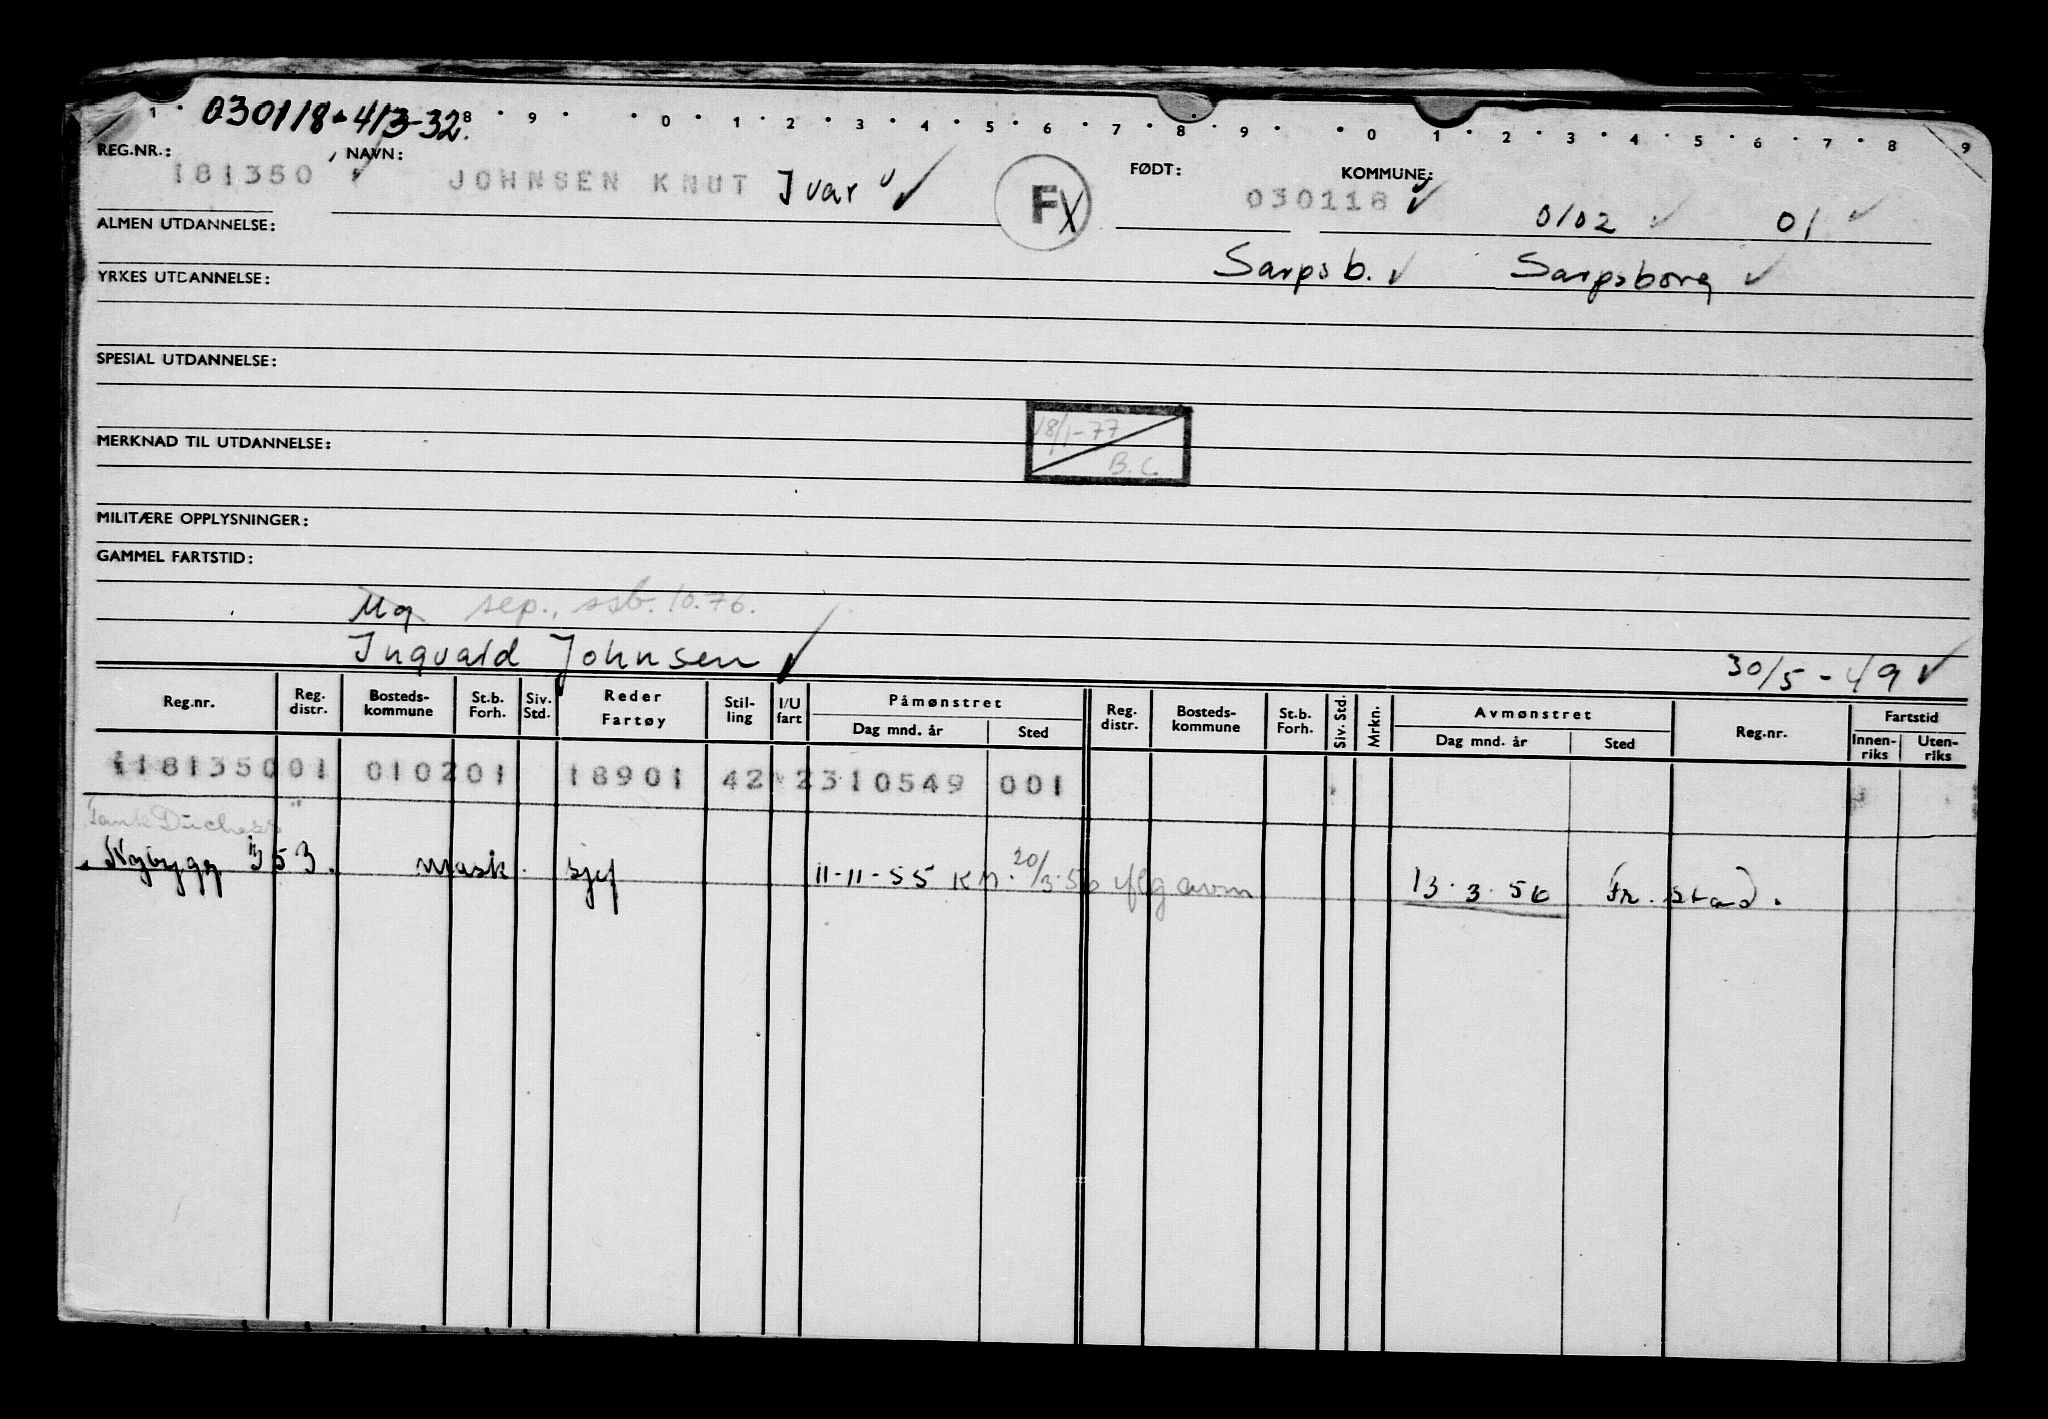 030118-413-32.
1 8 9 0 1 2 3 4 5 6 7 8 9 0 1 2 3 4 5 6 7 8 9
REG.NR.: NAVN: FØDT: KOMMUNE:
181350 JOHNSEN KNUT Ivar Fx 030118 0102 01
ALMEN UTDANNELSE:
Sarpsb. Sarpsborg
YRKES UTDANNELSE:
SPESIAL UTDANNELSE:
18/1-77
MERKNAD TIL UTDANNELSE:
B.C.
MILITÆRE OPPLYSNINGER:
GAMMEL FARTSTID:
Ug sep., ssb. 10.76.
Ingvald Johnsen 30/5-49
Reg.nr. Reg. distr. Bosteds-kommune St.b. Forh. Siv. Std. Reder Fartøy Stil-ling I/U fart Påmønstret Dag mnd. år Sted Reg. distr. Bosteds-kommune St.b. Forh. Siv. Std. Mrkn. Avmønstret Dag mnd. år Sted Reg.nr. Fartstid Innen-riks Uten-riks
118135001 010201 18901 42 2310549 001
Tank Duchess"
Nybygg 353. Mask. sjef 11-11-55 KM. 20/3-56 iflg avm 13.3.56 Fr.stad.